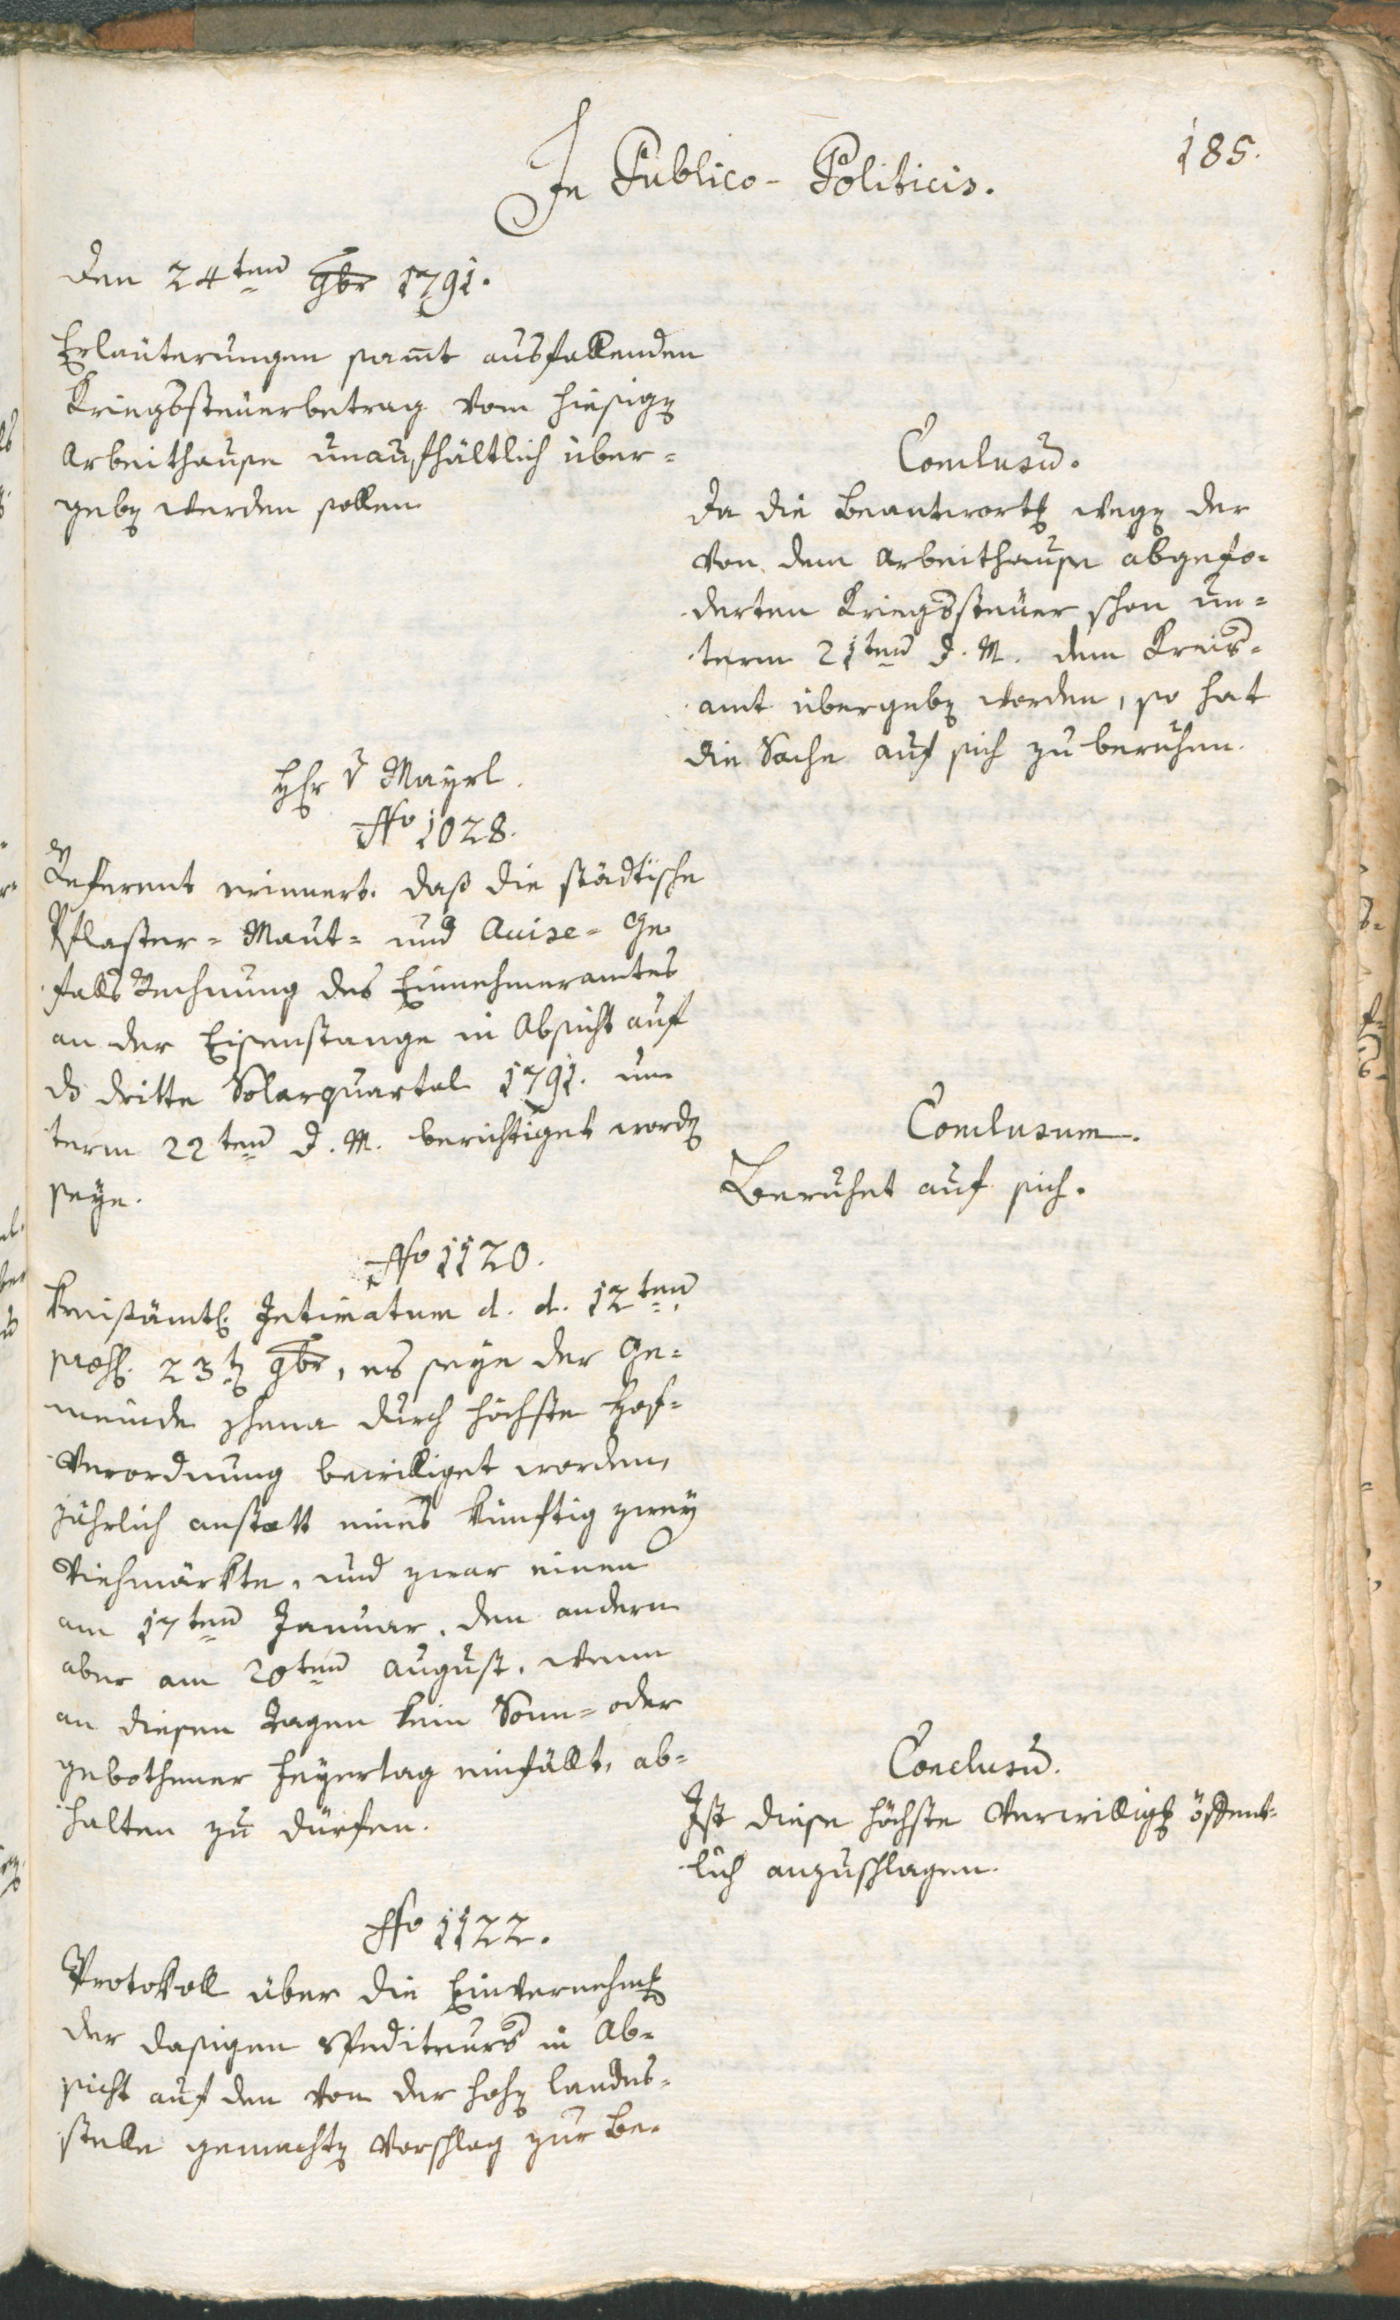 In Publico-Politicis.
185.
Den 24ten 9br 1791.
Erläuterungen samt ausfallenden
Kriegssteuerbetrag vom hiesigen
Arbeithause unaufhältlich über=
geben werden sollen
Conclusum.
Da die Beantwortung wegen der
von dem Arbeithause abgefo-
derten Kriegssteuer schon un=
term 21ten d. M. dem Kreis=
amt übergeben worden, so hat
die Sache auf sich zu beruhen.
Hr v Mayrl.
No 1028.
Referent erinnert. daß die städtische
Pflaster= Maut= und Accise= Ge-
falls Rechnung des Einnehmeramtes
an der Eisenstange in Absicht auf
das dritte Solarquartal 1791. un-
term 22ten d. M. berichtiget worden
seye.
Conclusum.
Beruhet auf sich.
No 1120.
Kreisämtl. Intimatum d. d. 12ten
præs. 23ten 9br, es seye der Ge=
meinde Schena durch höchste Hof=
verordnung bewilliget worden,
jährlich anstatt eines künftig zwey
Viehmärkte, und zwar einen
am 17ten Januar, den andern
aber am 20ten August, wenn
an diesen Tagen kein Sonn= oder
gebothener Feyertag einfällt, ab=
halten zu dürfen.
Conclusum.
Ist diese höchste Verwilligung öffent=
lich anzuschlagen.
No 1122.
Protokoll über die Einvernehmung
der dasigen Spediteurs in Ab=
sicht auf den von der hohen Landes=
stelle gemachten Vorschlag zur Be-